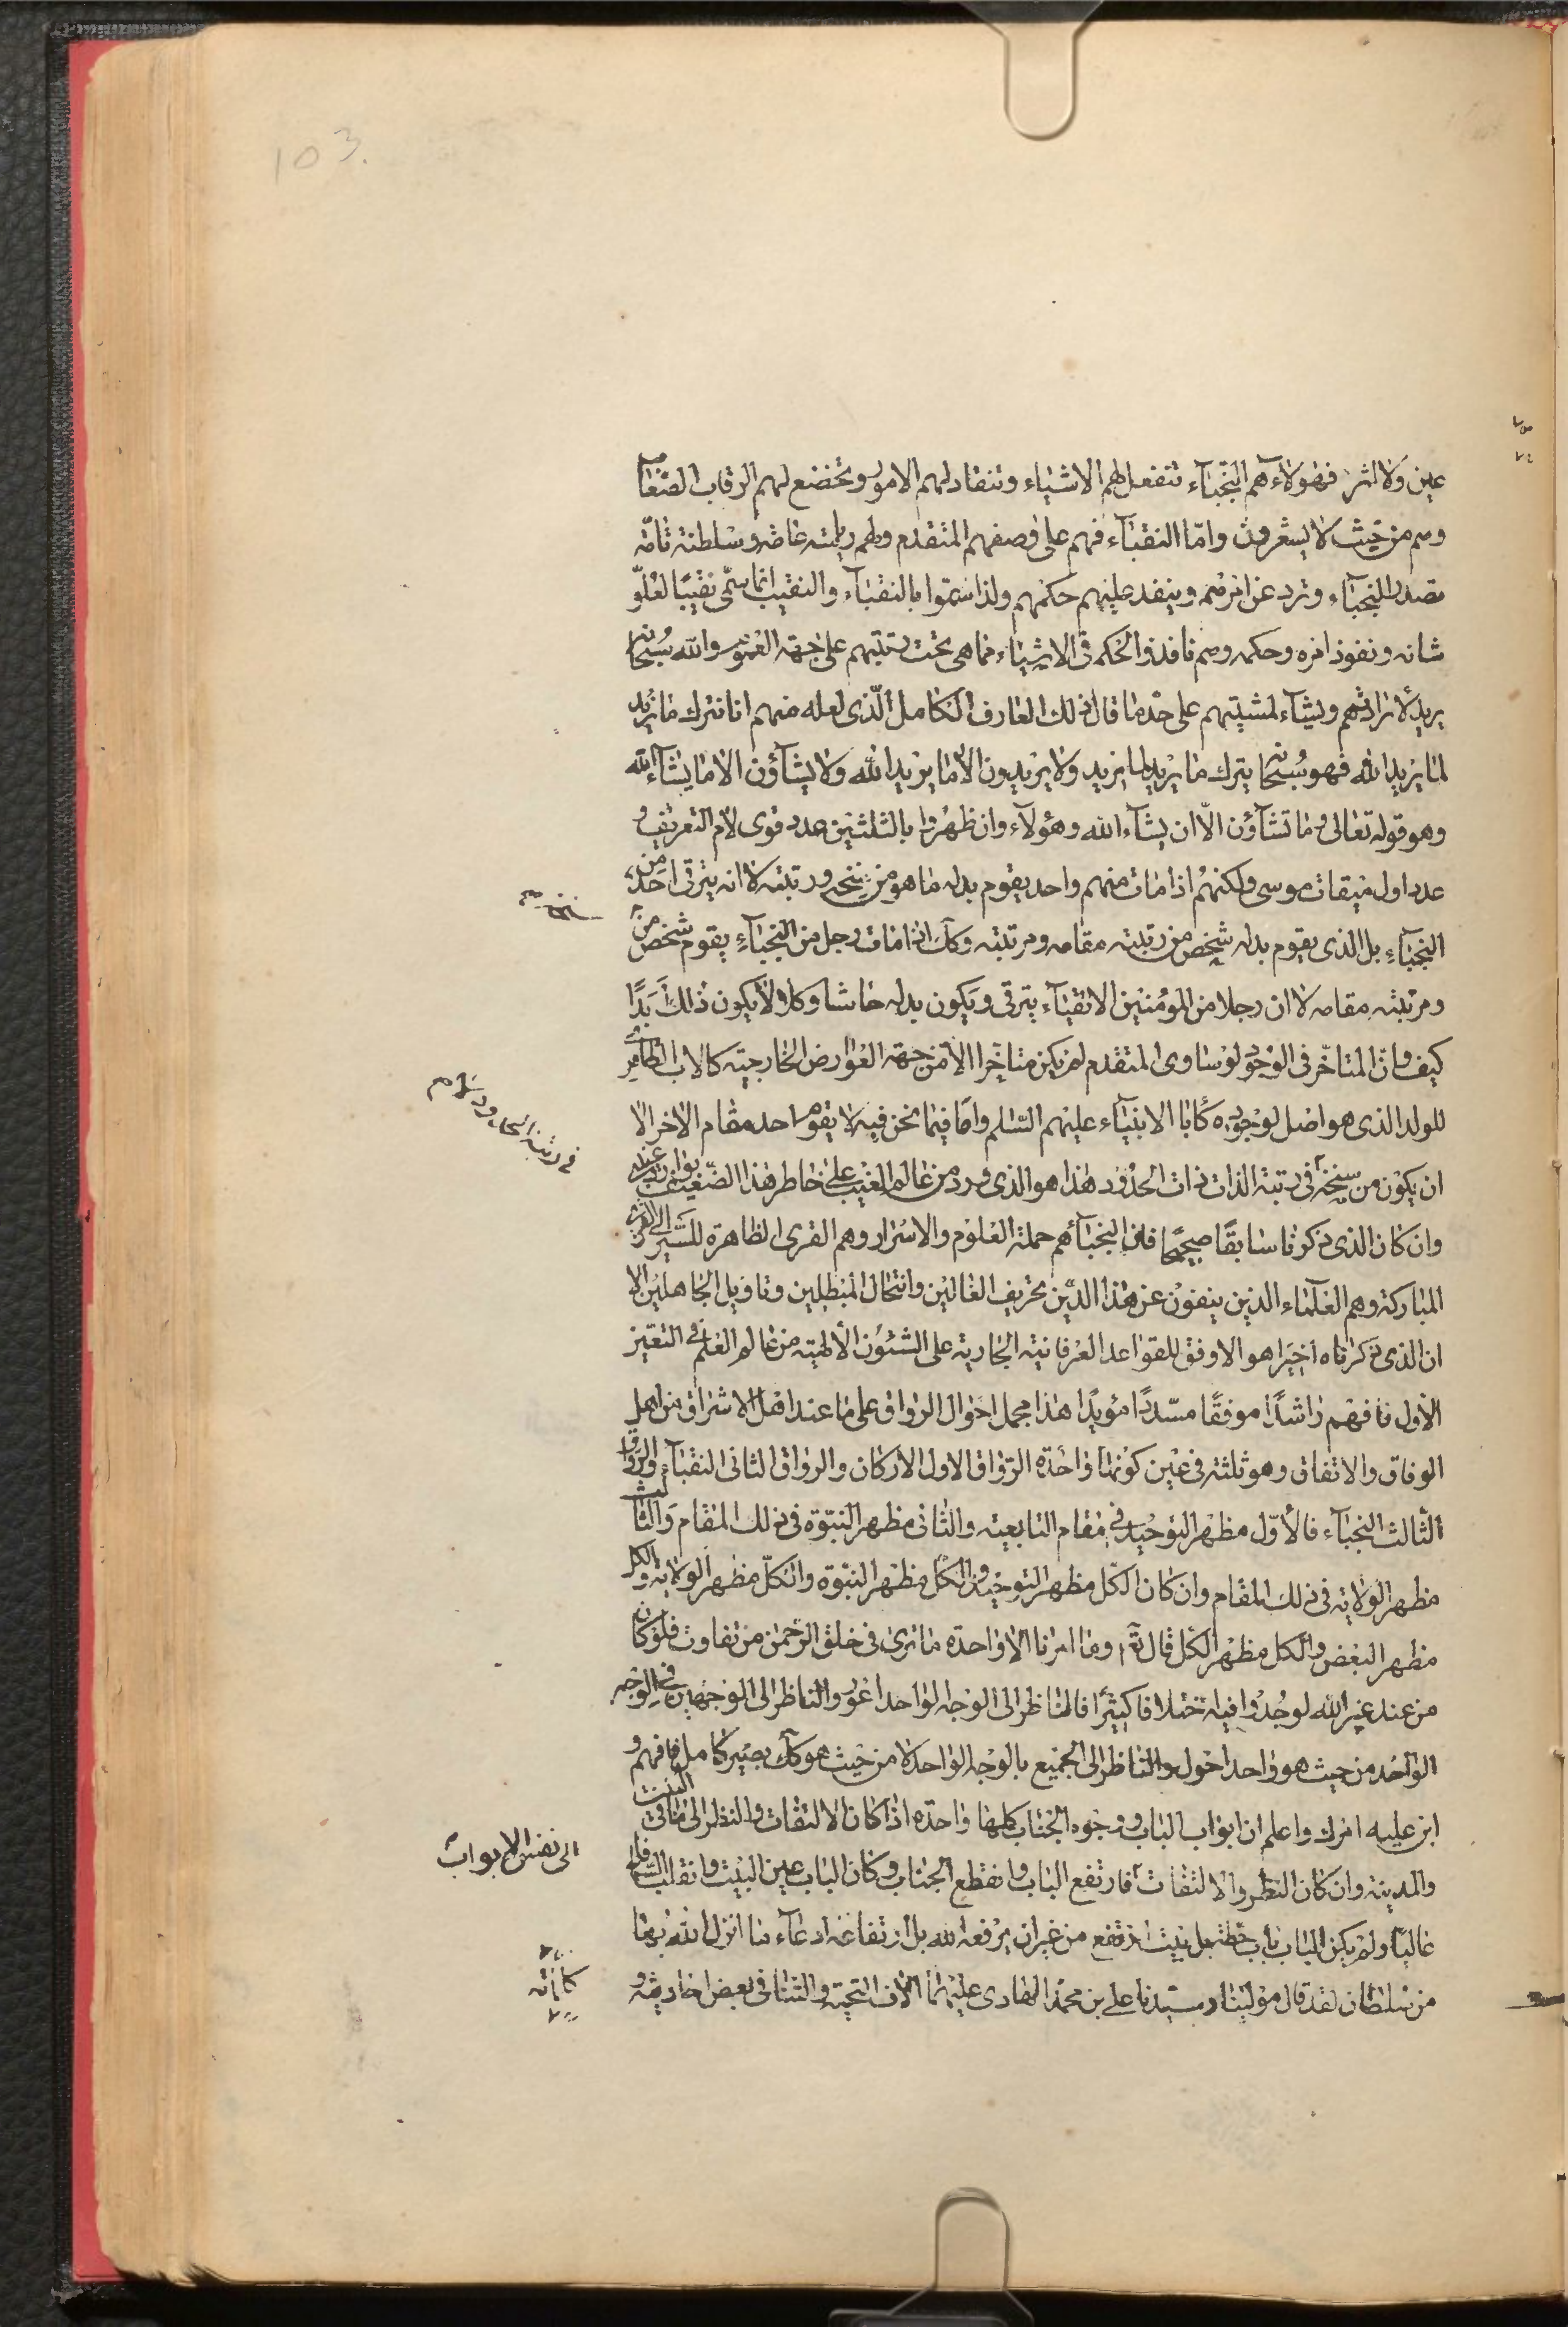 103.
عين ولا اثر فهؤلاء هم النجبآء تنفعل لهم الاشياء وتنقاد لهم الامور وتخضع لهم الرقاب الصعاب
وهم من حيث لا يشعرون وامّا النقبآء فهم على وصفهم المتقدم ولهم رياسته عامة وسلطنة تامّة
تصدر النجبآء وترد عن امرهم وينفد عليهم حكمهم ولذا سمّوا بالنقبآء والنقيب انما سمّى نقيبًا لعلّو
شانه ونفوذ امره وحكمه وهم نافذوا الحكم فى الاشياء مما هى تحت رتبتهم على جهة العموم والله سُبحانه
يريد لارادتهم ويشآء لمشيتهم على حدّ ما قال ذلك العارف الكامل الّذى لعله منهم انا نترك ما نريد
لما يريد الله فهو سُبحانه يترك ما يريد لما نريد ولا يريدون الا ما يريد الله ولا يشآؤن الا ما يشآء الله
وهو قوله تعالى وما تشآؤن الّا ان يشآء الله وهؤلاء وان ظهروا بالثلثين عدد قوى لام التعريف و
عدد اول ميقات موسى ولكنهم اذا مات منهم واحد يقوم بدله ما هو من سنخه ورتبته لا انه يترقى احد من
النجبآء بل الذى يقوم بدله شخص من رتبته مقامه ومرتبته وكك اذا مات رجل من النجبآء يقوم شخص من
ومرتبته مقامه لا ان رجلا من المؤمنين الاتقيآء يترقى ويكون بدله حاشا وكلا ولا يكون ذلك بدًا
كيف وان المتاخّر فى الوجود لو ساوى المتقدم لم يكن متاخّرا الا من جهة العوارض الخارجية كالاب الظاهرى
للولد الذى هو اصل لوجوده كأبا الانبيآء عليهم السّلم واما فيما نحن فيه لا يقوم احد مقام الاخر الا
ان يكون من سنخه فى رتبة الذات ذات الحدود هذا هو الذى ورد من عالم الغيب على خاطر هذا الضّعيف
وان كان الذى ذكرنا سابقًا صحيحًا فان النجبآء هم حملة العلوم والاسرار وهم القرى الظاهرة للسّير الى القرى
المباركة وهم العلمآء الذين ينفون عن هذا الدّين تحريف الغالين وانتحال المبطلين وتاويل الجاهلين الا
ان الذى ذكرناه اخيرا هو الاوفق للقواعد العرفانية الجارية على الشئون الالهية من عالم العلم فى التعين
الاول فافهم راشدًا موفقًا مسّددًا مؤيدًا هذا مجمل احوال الرواق على ما عند اهل الاشراق من اهل
الوفاق والاتفاق وهو ثلثة فى عين كونها واحدة الرّواق الاول الاركان والرواق الثانى النقبآء والرواق
الثالث النجبآء فالأوّل مظهر التوحيد فى مقام التابعية والثانى مظهر النبّوة فى ذلك المقام والثالث
مظهر الولاية فى ذلك المقام وان كان الكّل مظهر التوحيد والكّل مظهر النبّوة والكّل مظهر الولاية والكل
مظهر البعض والكل مظهر الكل قال تعٓ وما امرنا الا واحدة ما ترى فى خلق الرّحمن من تفاوت فلو كان
من عند غير الله لوجدوا فيه اختلافا كثيرًا فالناظر الى الوجه الواحد اعور والناظر الى الوجهين فى الوجه
الواحد من حيث هو واحد احول والناظر الى الجميع بالوجه الواحد لا من حيث هو كك بصير كامل فافهم و
ابن عليه امرك واعلم ان ابواب الباب ووجوه الجناب كلها واحدة اذا كان الالتفات والنظر الى ما فى البيت
والمدينة وان كان النظر والالتفات فارتفع الباب وانقطع الجناب وكان الباب عين البيت وانقلب السّافل
عاليًا ولم يكن الباب باب حطة بل بيت ارتفع من غير ان يرفعه الله بل ارتفاعه ادعآء ما انزل الله بها
من سلطان لقد قال مولينا وسيّدنا على بن محمّد الهادى عليهما الاف التحيّة والثنا فى بعض احاديثه
الى نفس الابواب